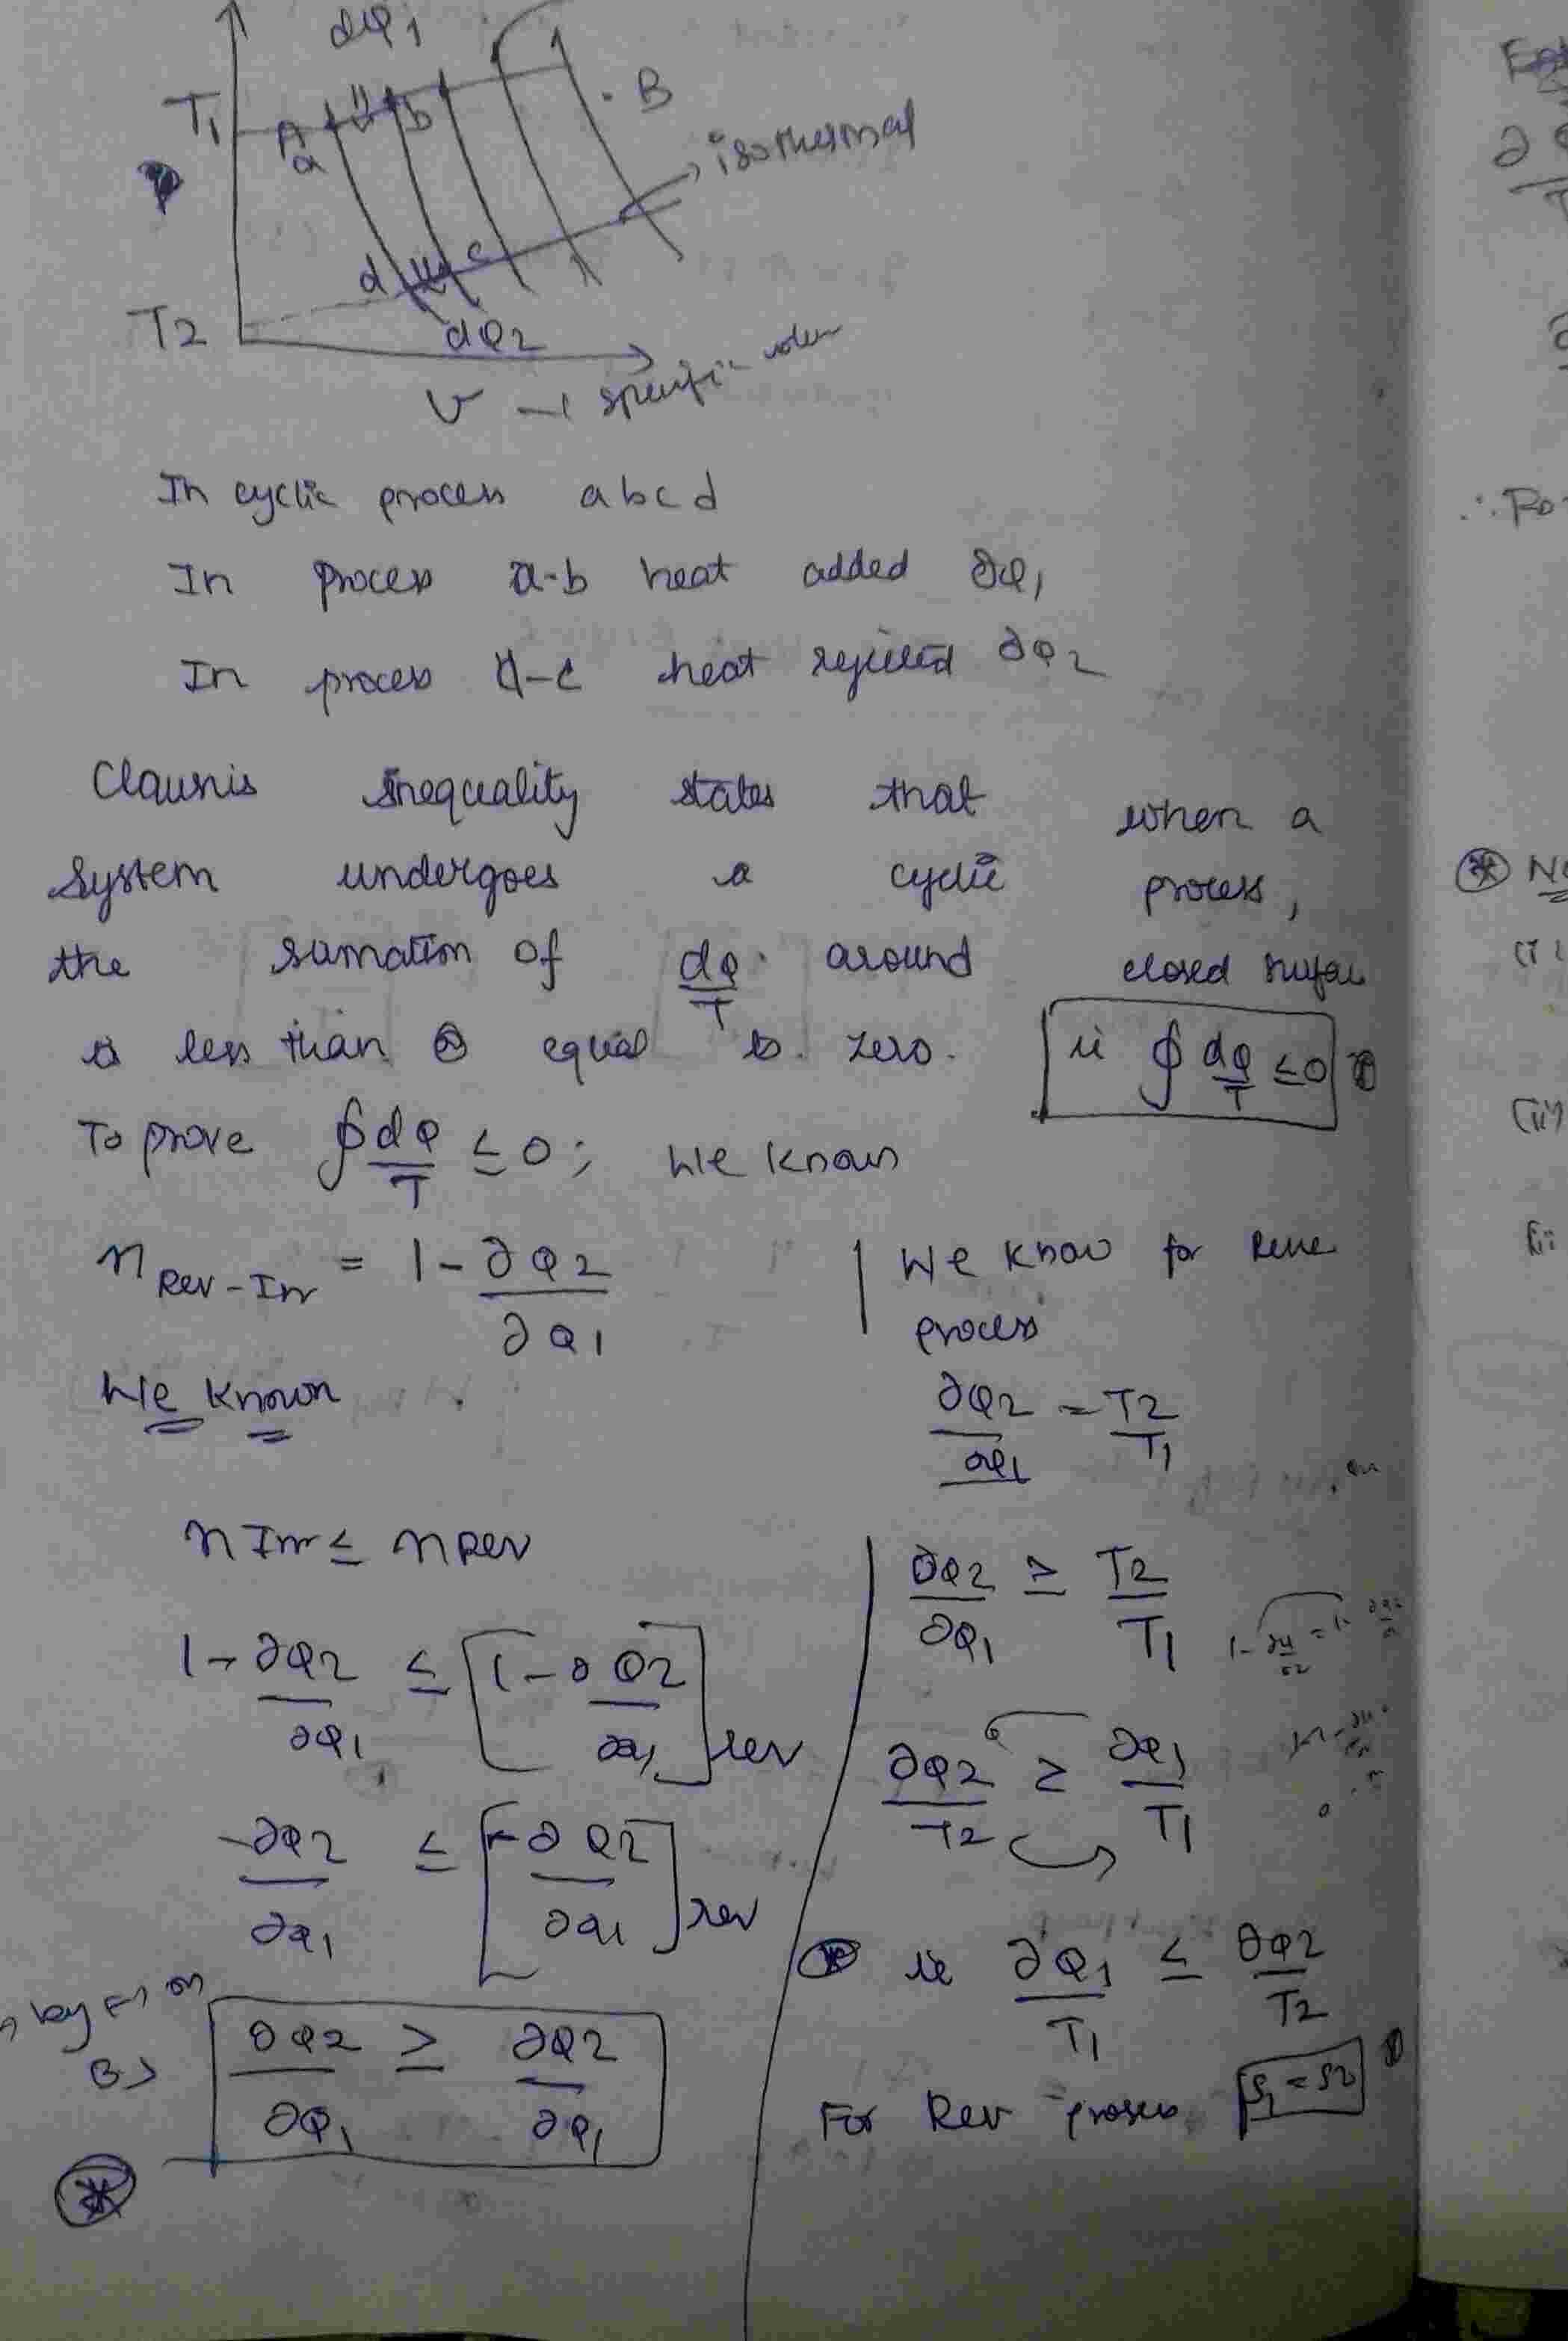 dQ1
T1
A
a
b
. B
isothermal
d
c
T2
dQ2
v → specific
In cyclic process abcd
In process a-b heat added ∂Q1
In process d-c heat rejected ∂Q2
Clausis inequality states that when a
system undergoes a cyclic process,
the sumation of dQ/T around closed
is less than or equal to zero.
ie ∮ dQ/T ≤ 0
To prove ∮ dQ/T ≤ 0 ; We known
η Rev-Irr = 1 - ∂Q2/∂Q1
We known
η Irr ≤ η Rev
1 - ∂Q2/∂Q1 ≤ [1 - ∂Q2/∂Q1] rev
-∂Q2/∂Q1 ≤ [-∂Q2/∂Q1] rev
∂Q2/∂Q1 ≥ ∂Q2/∂Q1
We know for
process
∂Q2/∂Q1 = T2/T1
∂Q2/∂Q1 ≥ T2/T1
∂Q2/T2 ≥ ∂Q1/T1
ie ∂Q1/T1 ≤ ∂Q2/T2
For Rev process S1 = S2
∴ For
(ii)